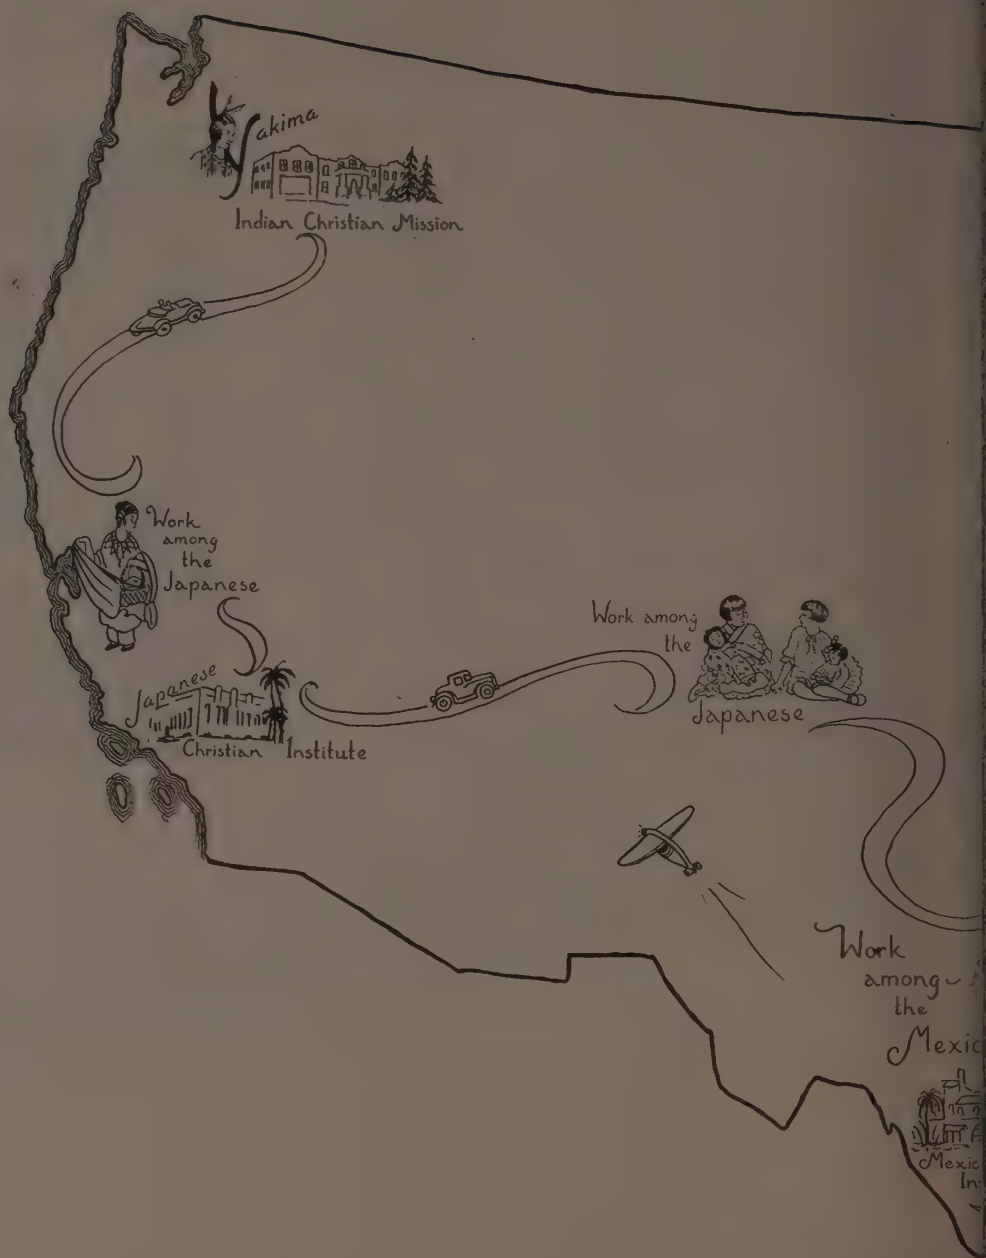 Yakima
Indian Christian Mission
Work
among
the
Japanese
Japanese
Christian Institute
Work among
the
Japanese
Work
among
the
Mexic
Mexic
In